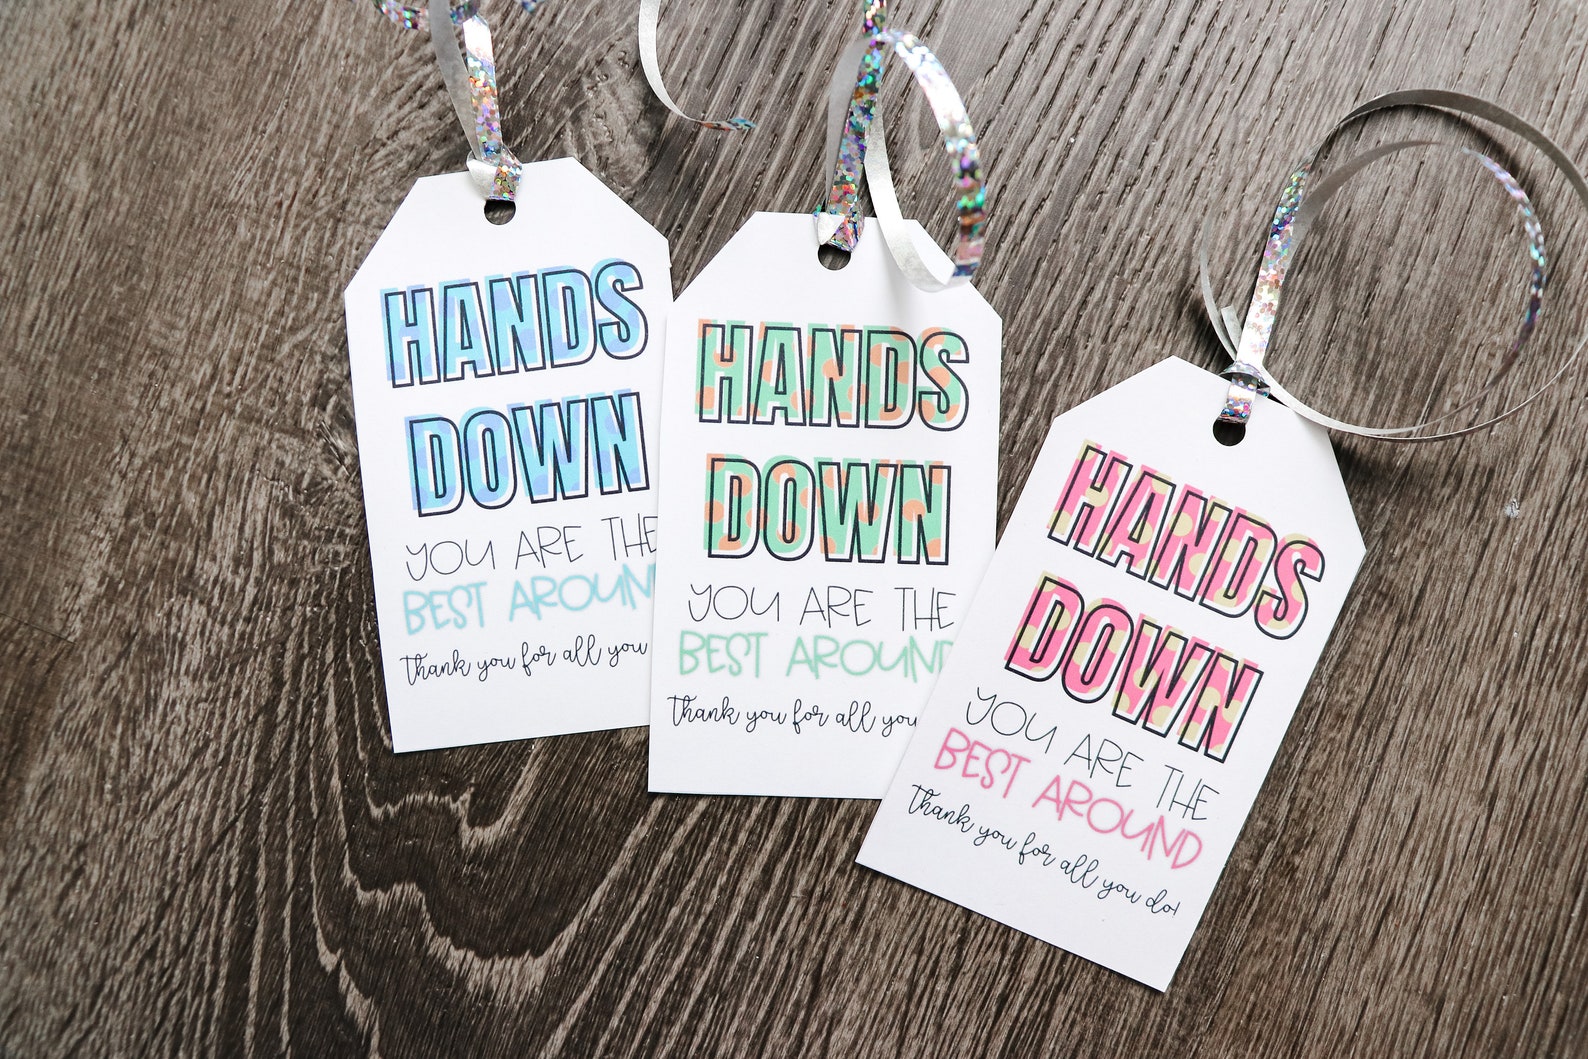 HANDS
DOWN
YOU ARE THE
BEST AROUN
thank you for all you
HANDS
DOWN
YOU ARE THE
BEST AROUND
thank you for all you
HANDS
DOWN
YOU ARE THE
BEST AROUND
thank you for all you do!